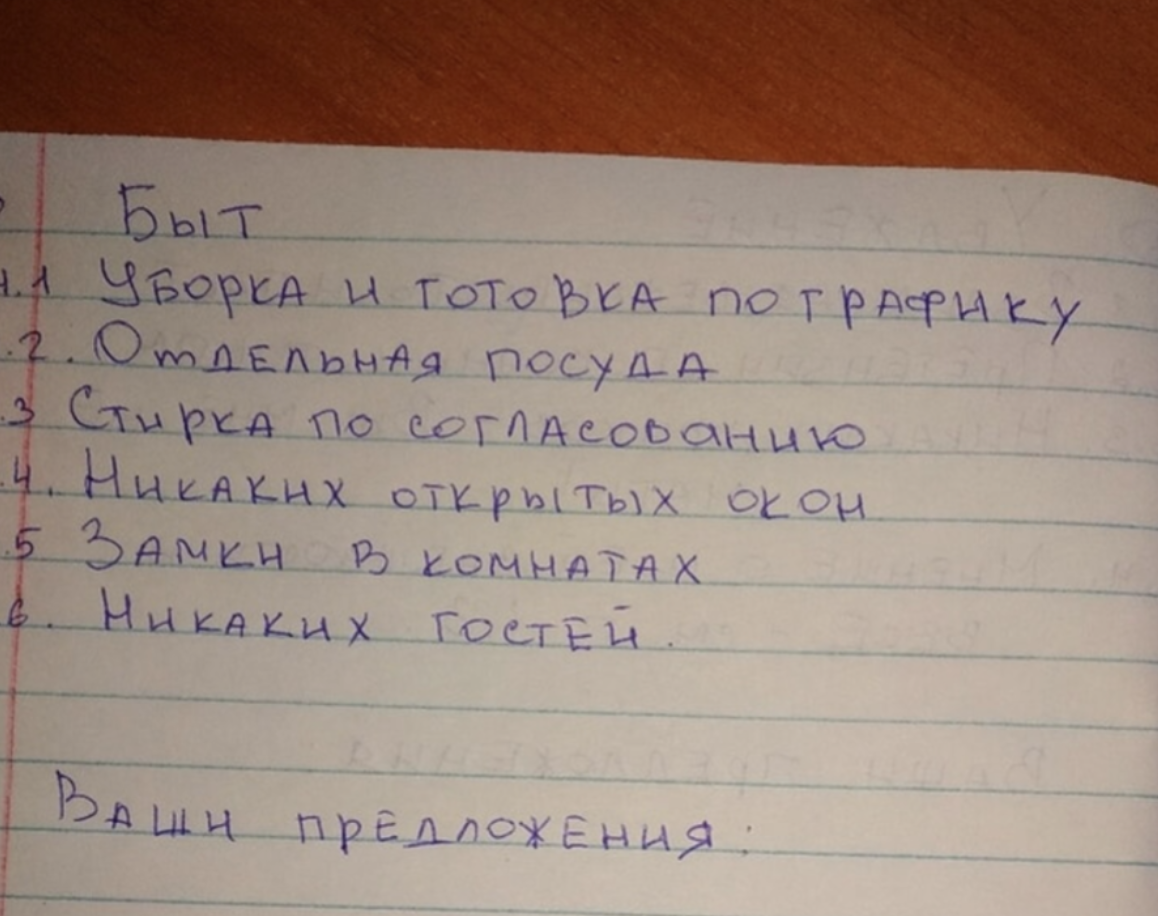 Быт
1.1 Уборка и готовка по графику
.2. Отдельная посуда
.3 Стирка по согласованию
.4. Никаких открытых окон
.5 Замки в комнатах
6. Никаких гостей.
Ваши предложения: